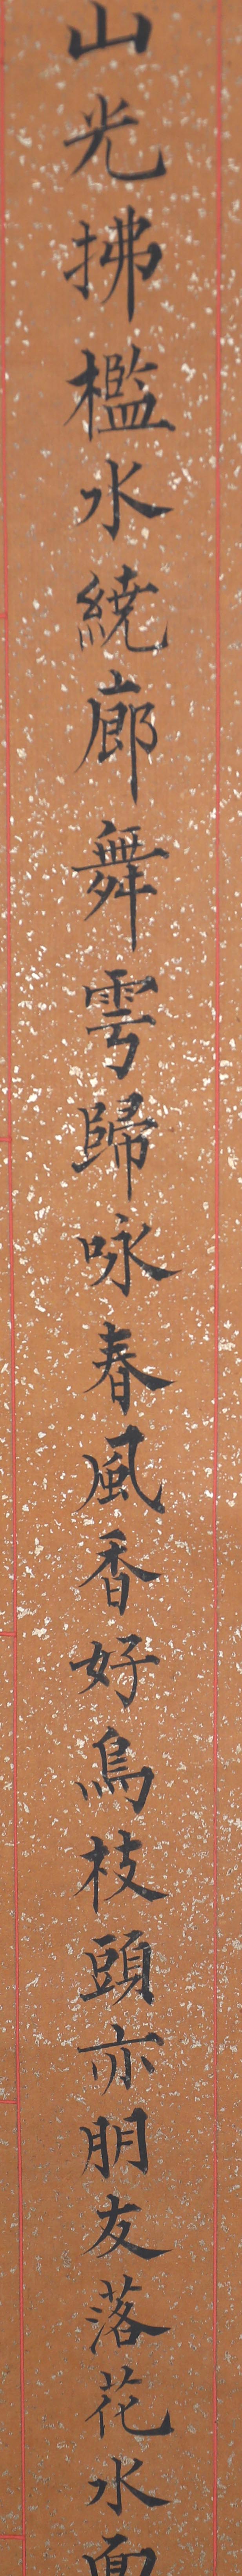 山光拂檻水繞廊舞雩歸咏春風香好鳥枝頭亦朋友落花水面